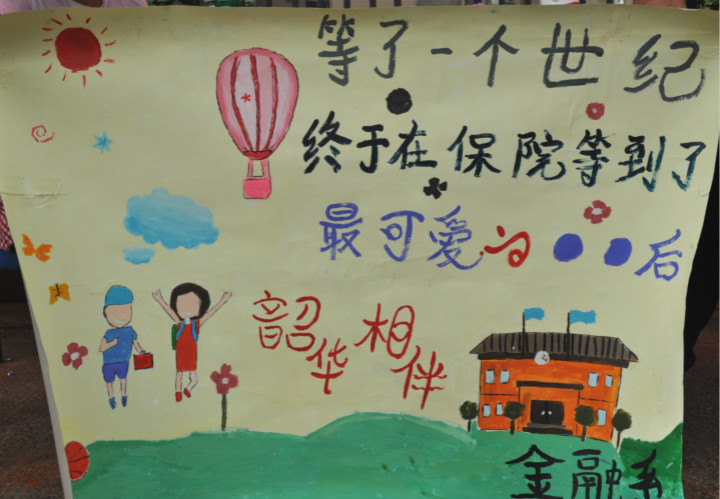 等了一个世纪
终于在保院等到了
最可爱的●●后
韶华相伴
金融系